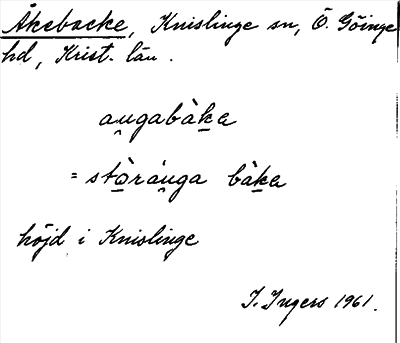 Åkebacke, Knislinge sn, Ö. Göinge
hd, Krist. län.
au̯gabàka
= stòráu̯ga bàka
höjd i Knislinge
I. Ingers 1961.